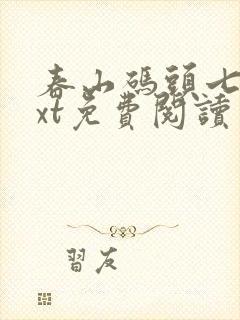 春山碼頭七
xt免費閱讀
習友